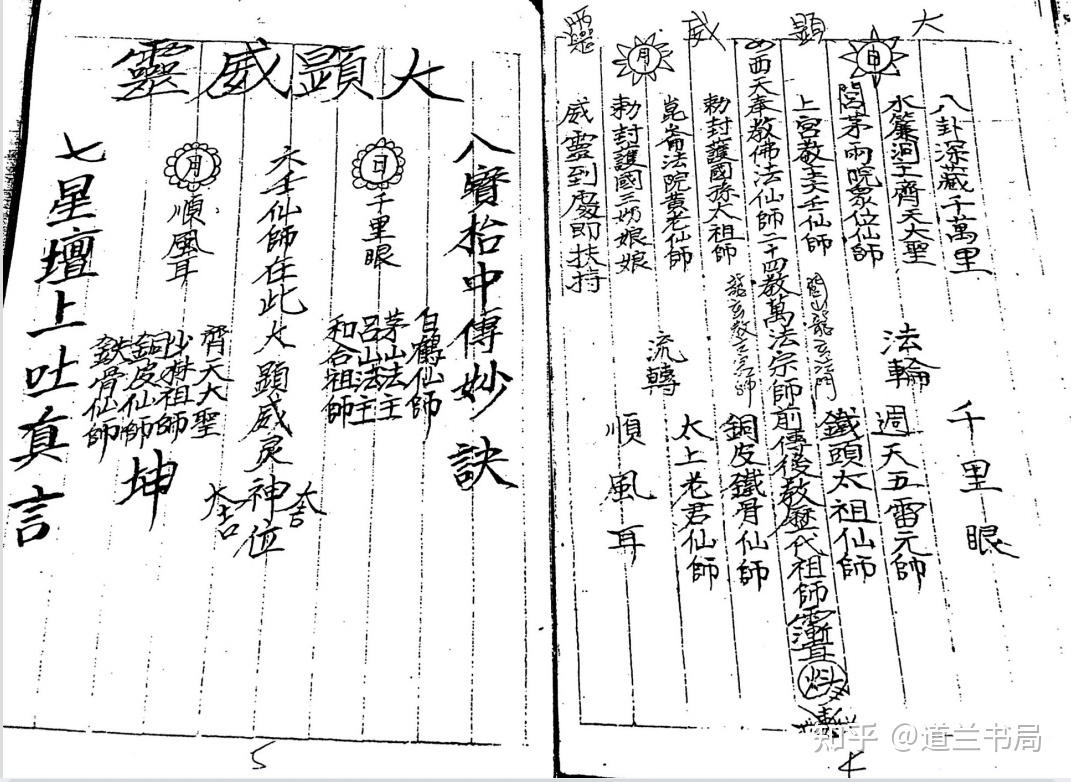 大顯威靈
日
月
八卦深藏千萬里
千里眼
水簾洞王齊天大聖
法輪
週天五雷元師
茅兩院眾位仙師
鐵頭太祖仙師
上宮教主六壬仙師
西天奉教佛法仙師二十四教萬法宗師前傳後教歷代祖師
勅封護國孫太祖師
銅皮鐵骨仙師
崑崙法院黄老仙師
流轉
太上老君仙師
勅封護國三奶娘娘
順風耳
威靈到處即扶持
4
大顯威靈
八寶拾中傳妙訣
白鶴仙師
茅山法主
呂山法主
和合祖師
日
千里眼
六壬仙師在此大顯威灵神位
月
順風耳
齊天大聖
沙林祖師
銅皮仙師
鉄骨仙師
坤
七星壇上吐真言
5
知乎 @道兰书局